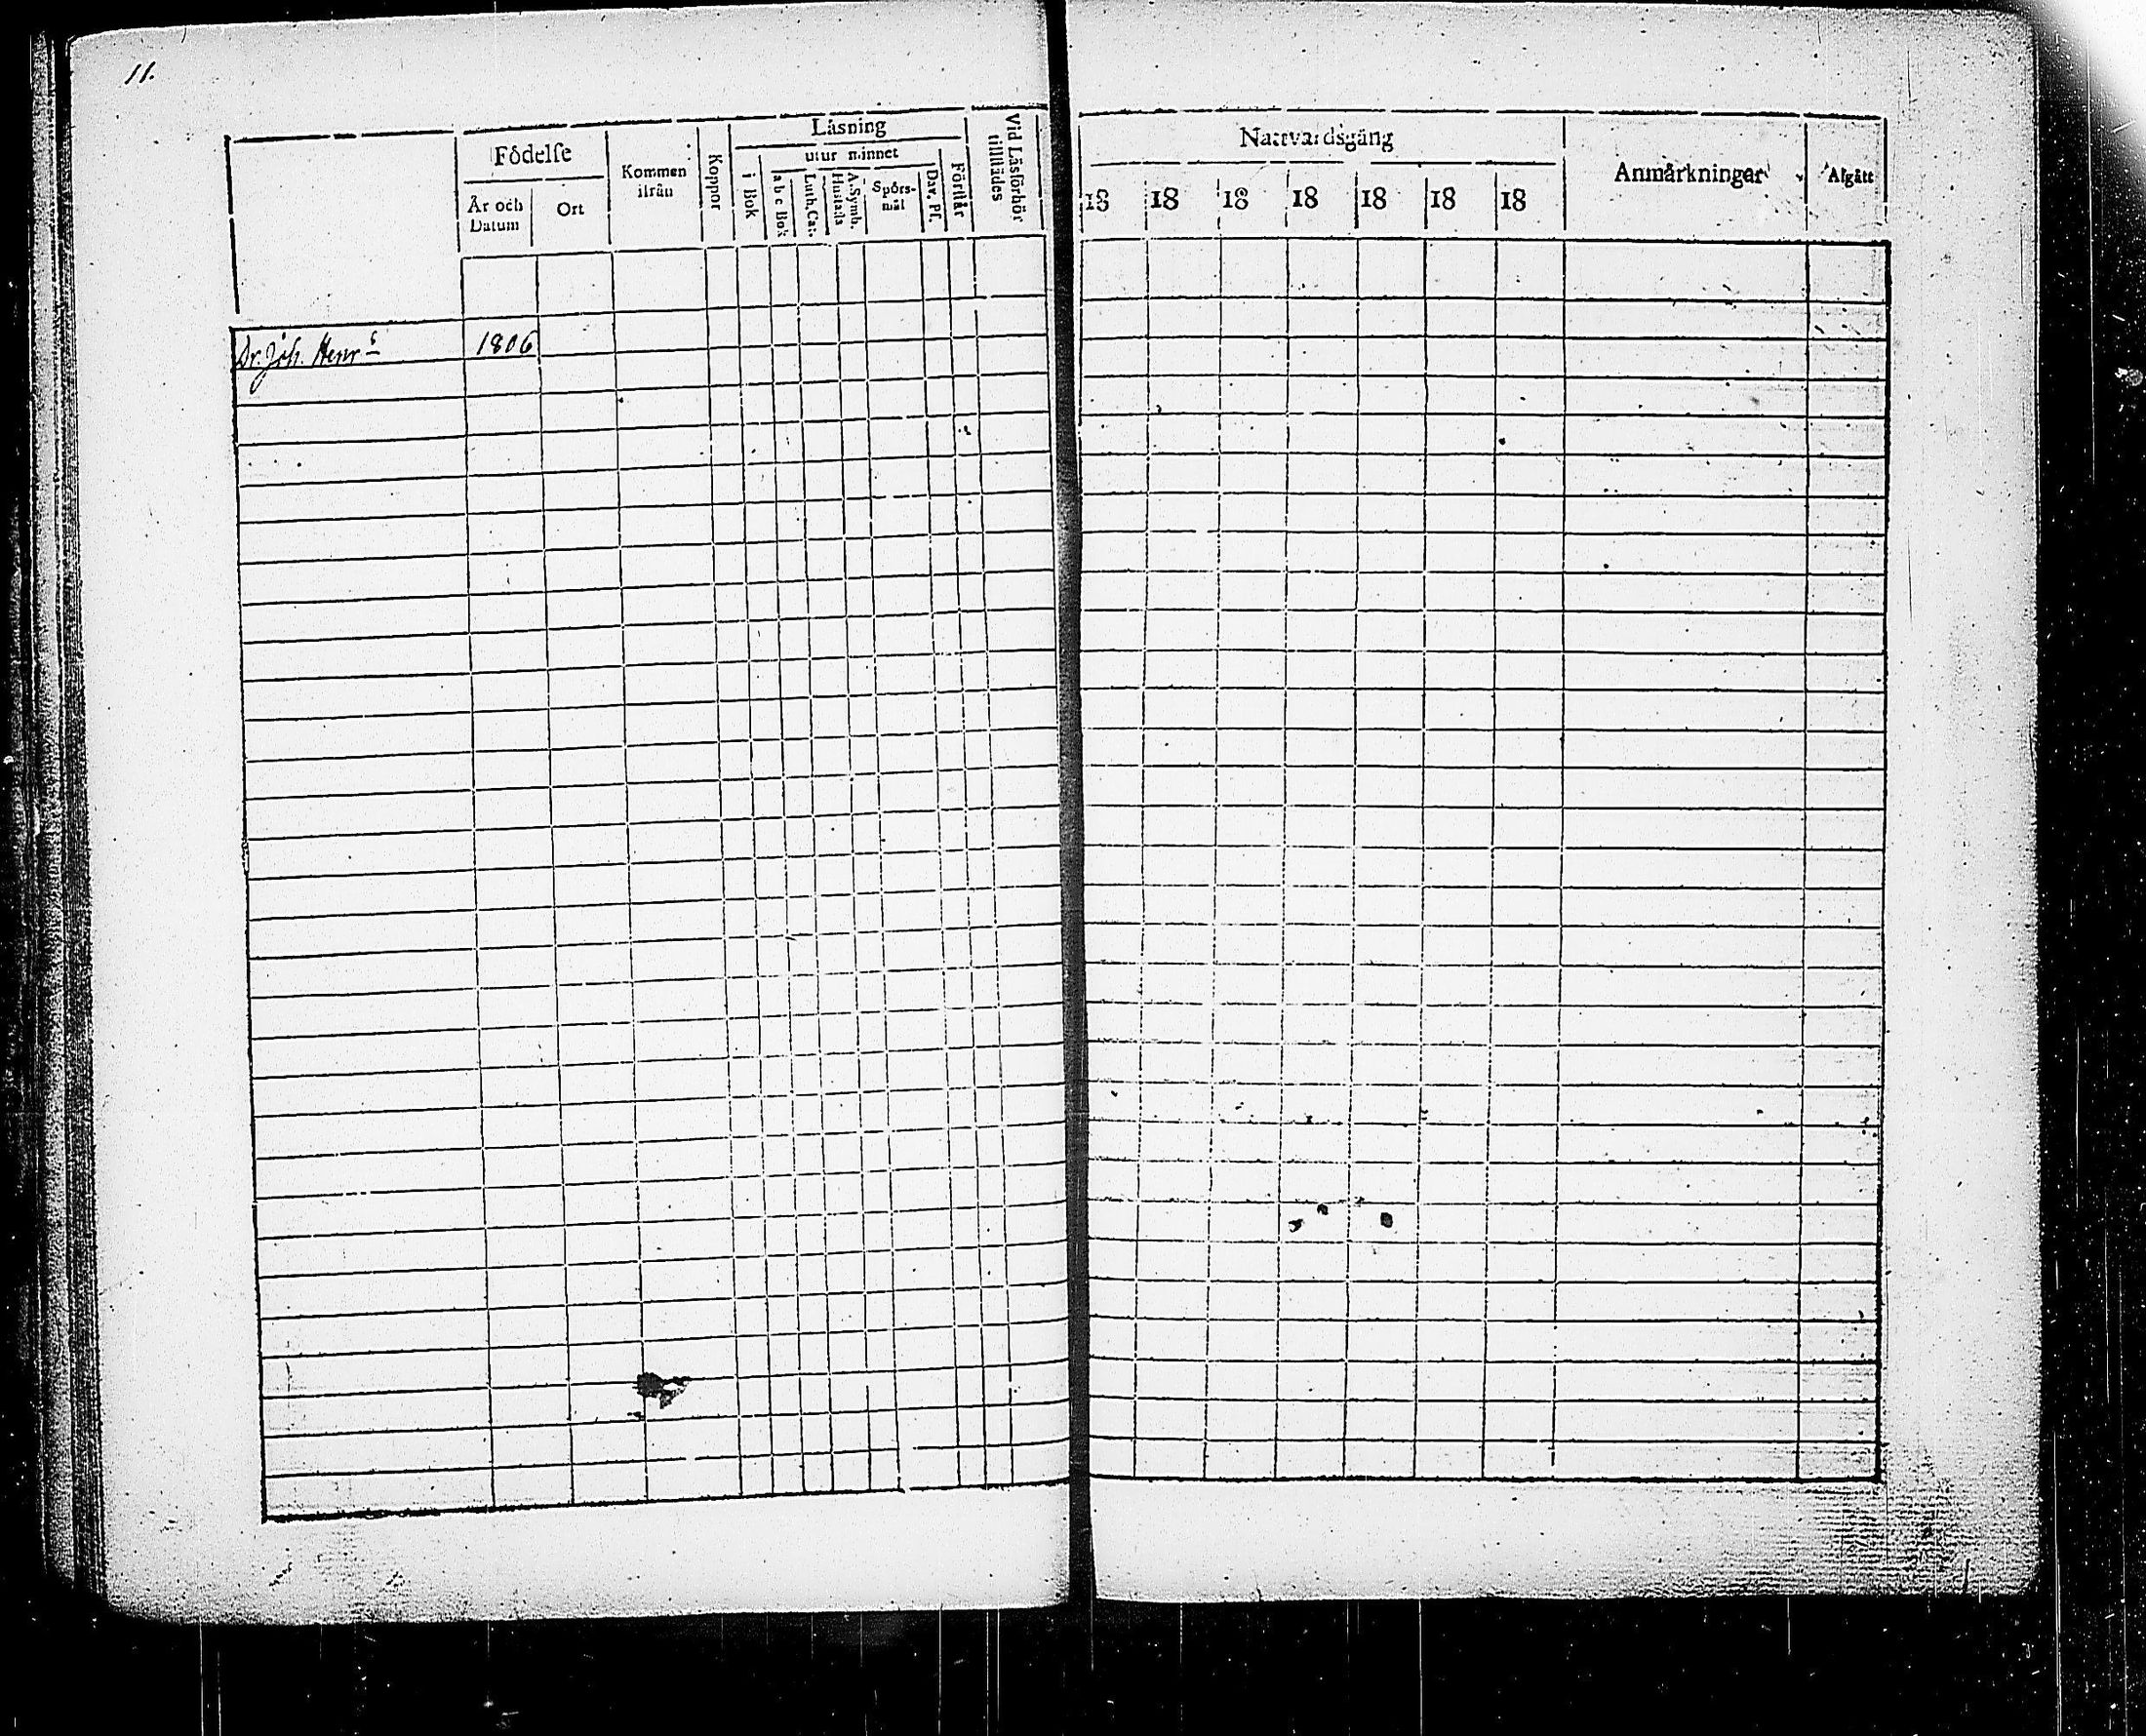 11.
Födelſe
År och Datum
Ort
Kommen ifrån
Koppor
Läsning
i Bok
utur minnet
a b c Bok
Luth. Cat.
Huſtafla
A. Symb.
Spörs-
mål
Dav. Pſ.
Förſtår
Vid Läsförhör
tillſtädes
Nattvardsgång
18 18 18 18 18 18 18
Anmärkningar
Afgått
Dr. Joh. Henr s 1806